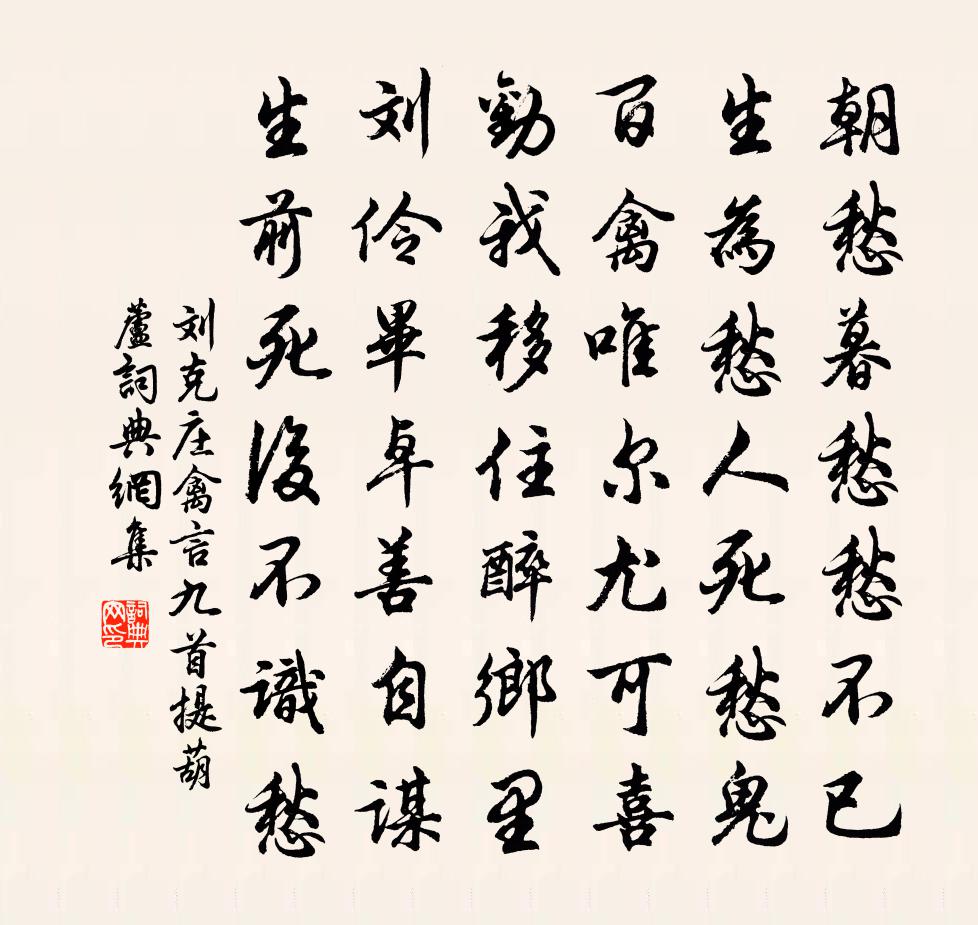 朝愁暮愁愁不已
生為愁人死愁鬼
百禽唯尔尤可喜
勸我移住醉鄉里
刘伶畢卓善自謀
生前死後不識愁
刘克庄禽言九首提葫
蘆詞典網集
詞典
网印